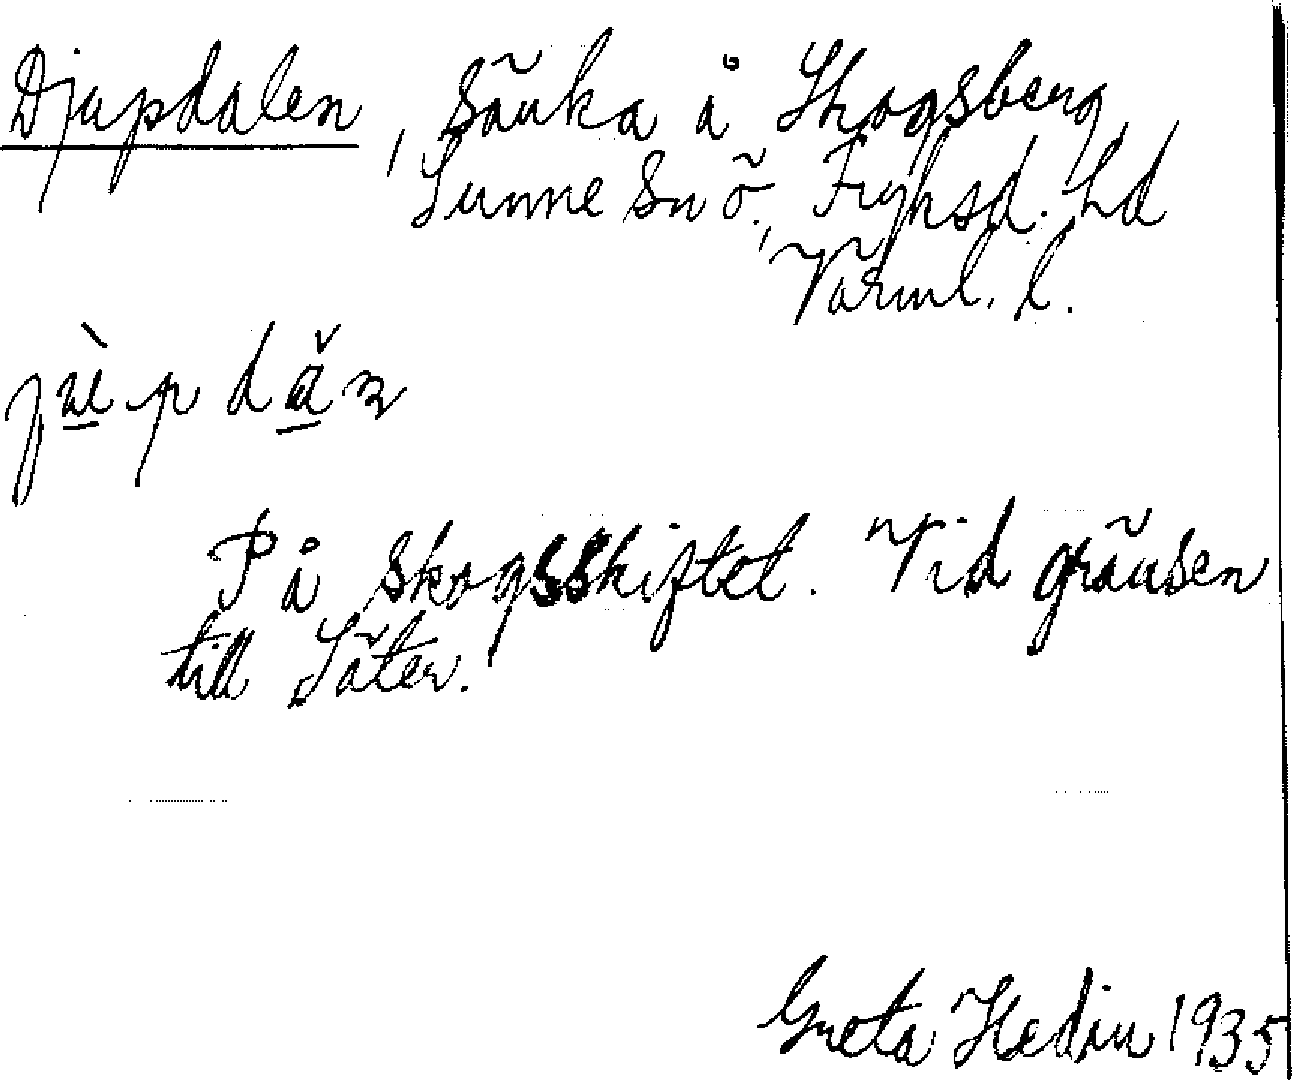 Djupdalen, sänka å Skogsberg,
Sunne sn ö., Fryksd. hd
Värml. l.
jùpdǎn
På skogsskiftet. Vid gränsen
till Säter.
Greta Hedin 1935